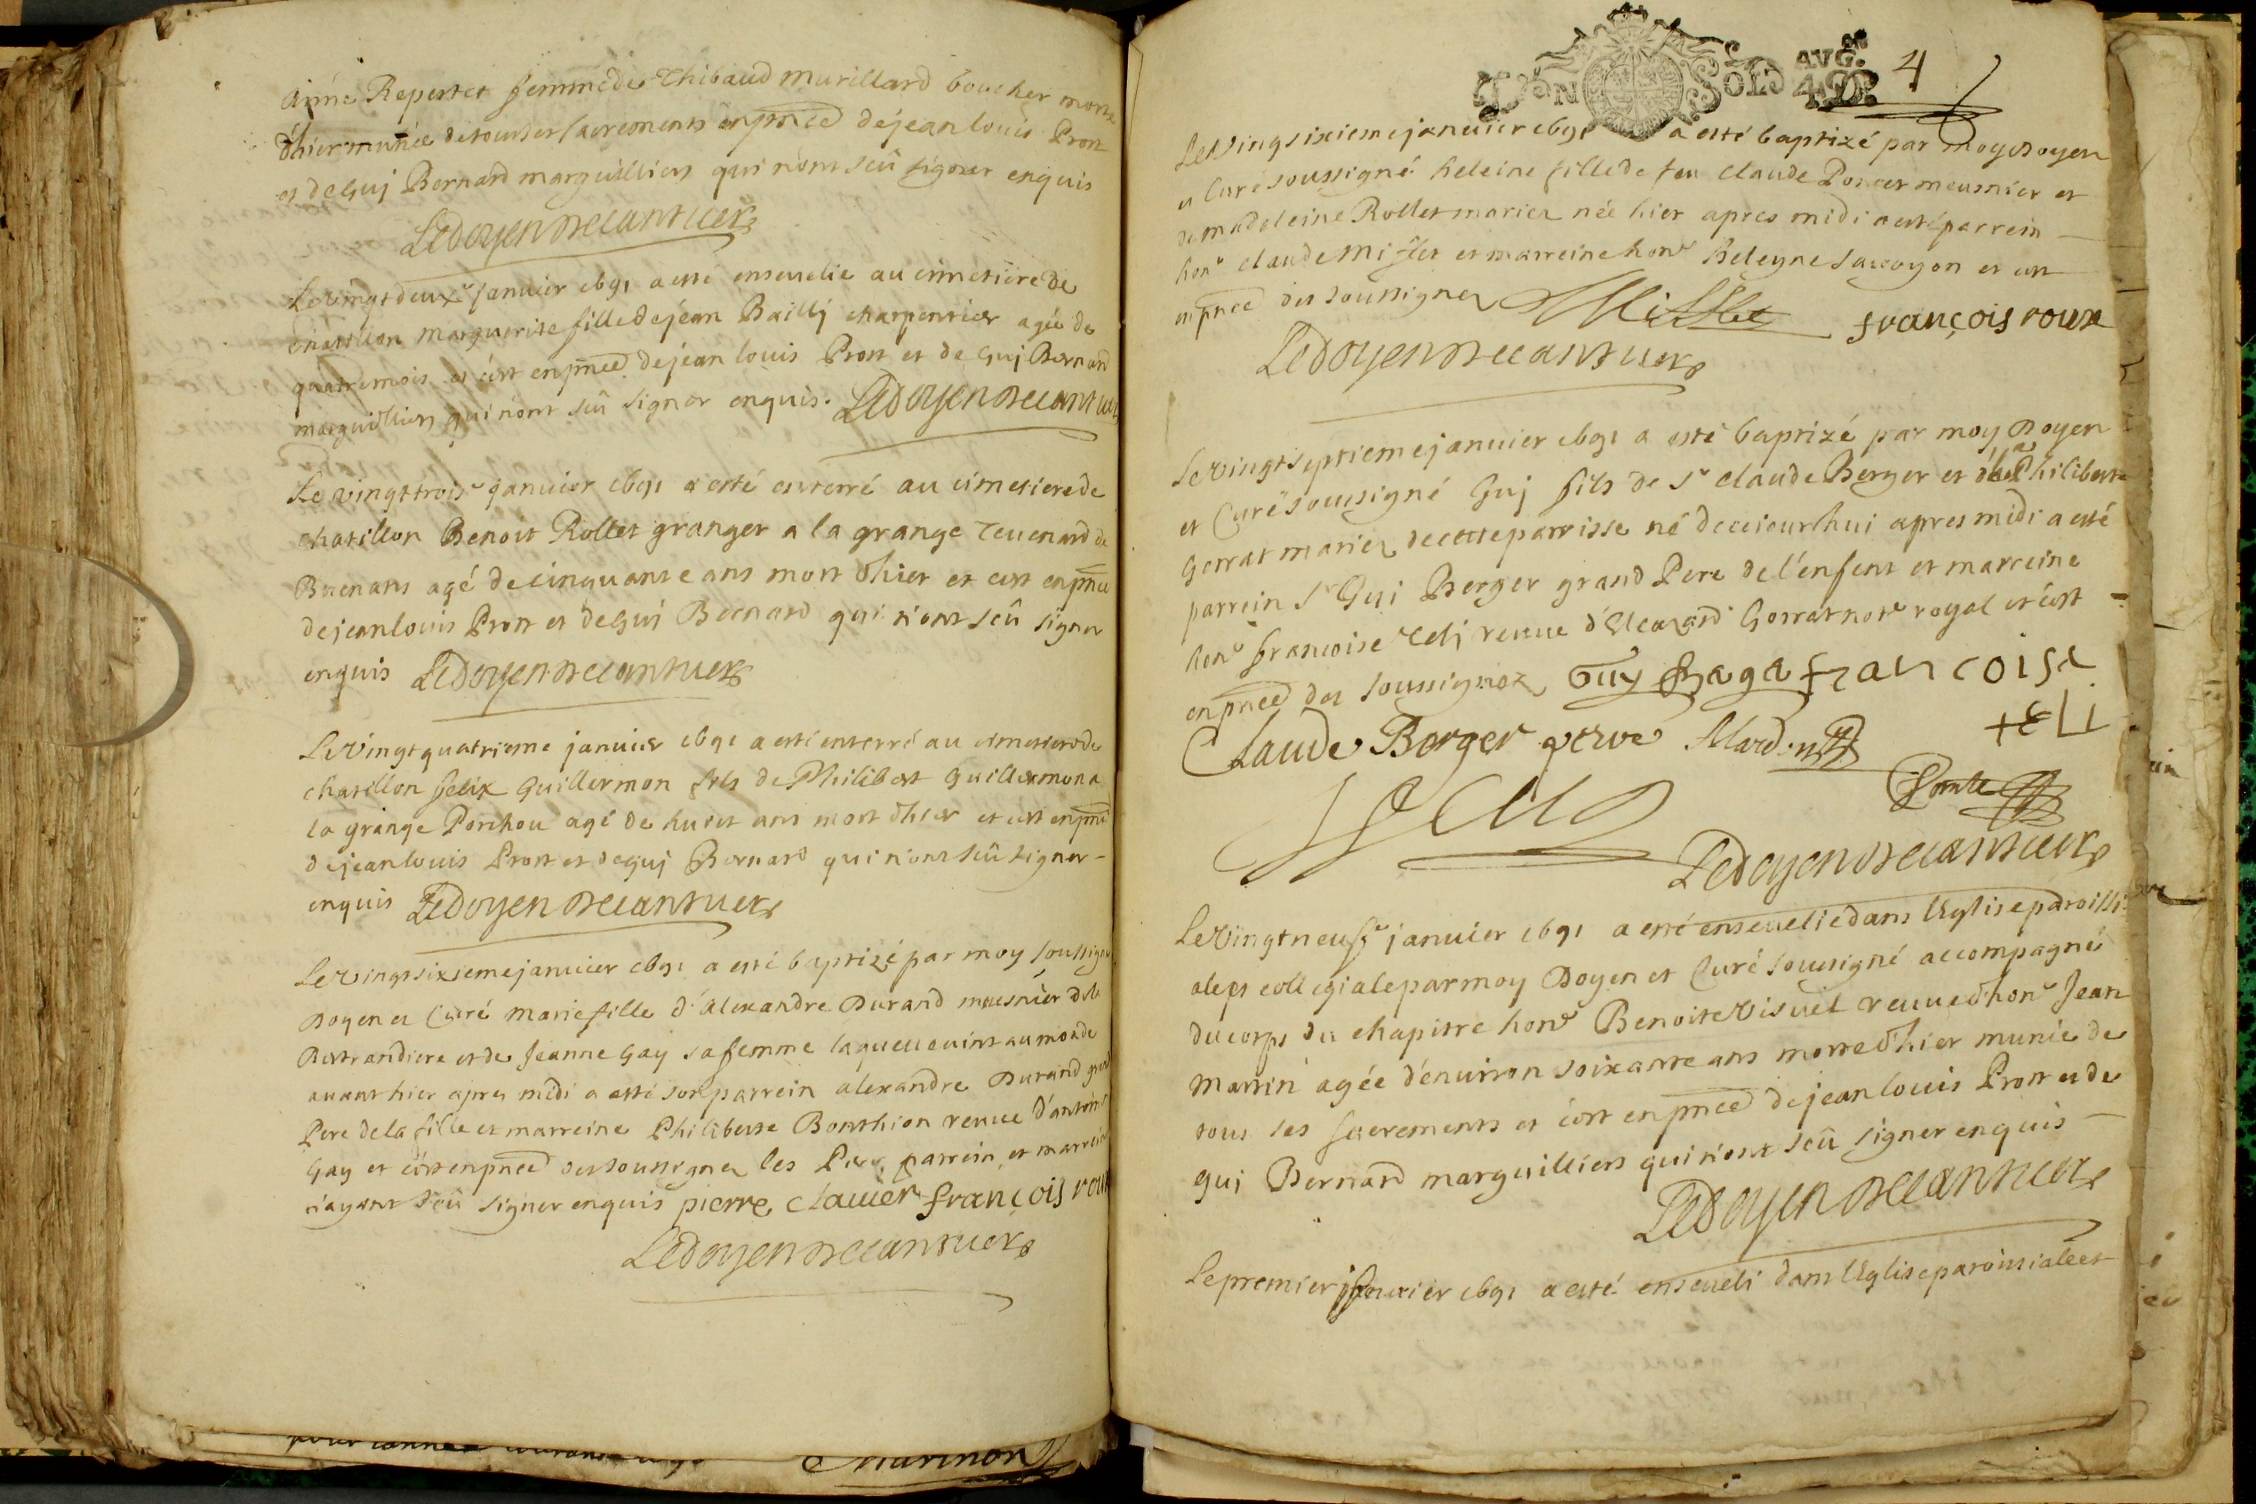 Anne Repertet femme de Thibaud Murillard boucher morte
d'hier munie de tous ses sacrements en pnce de jean louis Pron
et de Guj Bernard marguilliers qui n'ont seû signer enquis
Ledoyen Decantuers
Le vingt deuxe januier 1691 a esté enseuelie au cimetiere de
chatillon marguerite fille de jean Baillj charpentier agée de
quatre mois et c'est en pnce de jean louis Pron et de Guj Bernard
marguilliers qui n'ont seû signer enquis. Ledoyen Decantuers
Le vingt troise januier 1691 a esté enterré au cimetiere de
chatillon Benoit Rollet granger a la grange Teuenard de
Buenans agé de cinquante ans mort d'hier et c'est en pnce
de jean louis Pron et de Guj Bernard qui n'ont seû signer
enquis Ledoyen Decantuers
Le Vingt quatrieme januier 1691 a esté enterré au cimetiere de
chatillon felix Guillermon fils de Philibert Guillermon a
la grange Porchou agé de huict ans mort d'hier et c'est en pnce
de jean louis Pron et de Guj Bernard qui n'ont seû signer
enquis Ledoyen Decantuers
Le Vingt sixieme januier 1691 a esté baptizé par moy soussigné
Doyen et Curé marie fille d'alexandre Durand meusnier de la
Bertrandiere et de Jeanne Gay sa femme laquelle vint au monde
auant hier apres midi a esté son parrein alexandre Durand grand
Pere de la fille et marreine Philiberte Bonthion veuue d'antoine
Gay et c'est en pnce des soussignez les Pere, parrein, et marreine
n'ayant seû signer enquis pierre clauier françois roux
Ledoyen Decantuers
pour l'année courante
AVG.on
4
SOLD 4 D.
Le Vingt sixieme januier 1691 a esté baptizé par moy Doyen
et Curé soussigné heleine fille de feu Claude Poncet meusnier et
de madeleine Rollet mariez née hier apres midi a esté parrein
hone claude Millet et marreine hone Heleyne Sauoyon et c'est
en pnce des soussignez Millet françois roux
Ledoyen Decantuers
Le Vingt septieme januier 1691 a esté baptizé par moy Doyen
et Curé soussigné Guj fils de Sr claude Berger et de Philiberte
Gorrat mariez de cette parroisse né de ceiourd'hui apres midi a esté
parrein Sr Gui Berger grand Pere de l'enfent et marreine
hone francoise Telj veuue d'Eleazard Gorrat note royal et c'est
en pnce des soussignez Guy francoise
teli
Claude Berger
Comte
Ledoyen Decantuers
Le Vingt neufe januier 1691 a esté enseuelie dans l'Eglise paroissi
ale et collegiale par moy Doyen et Curé soussigné accompagné
du corps du chapitre hone Benoite Visuel veuue d'hone Jean
Marrin agée d'enuiron soixante ans morte d'hier munie de
tous ses sacrements et c'est en pnce de jean louis Pron et de
guj Bernard marguilliers qui n'ont seû signer enquis
Ledoyen Decantuers
Le premier 1691 a esté enseueli dans l'Eglise paroissiale et